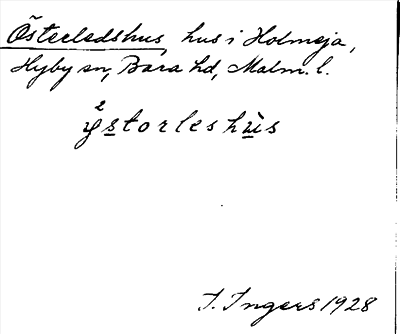 Österledshus, hus i Holmeja,
Hyby sn, Bara hd, Malm. l.
ÿ̀storleshùs
I. Ingers 1928